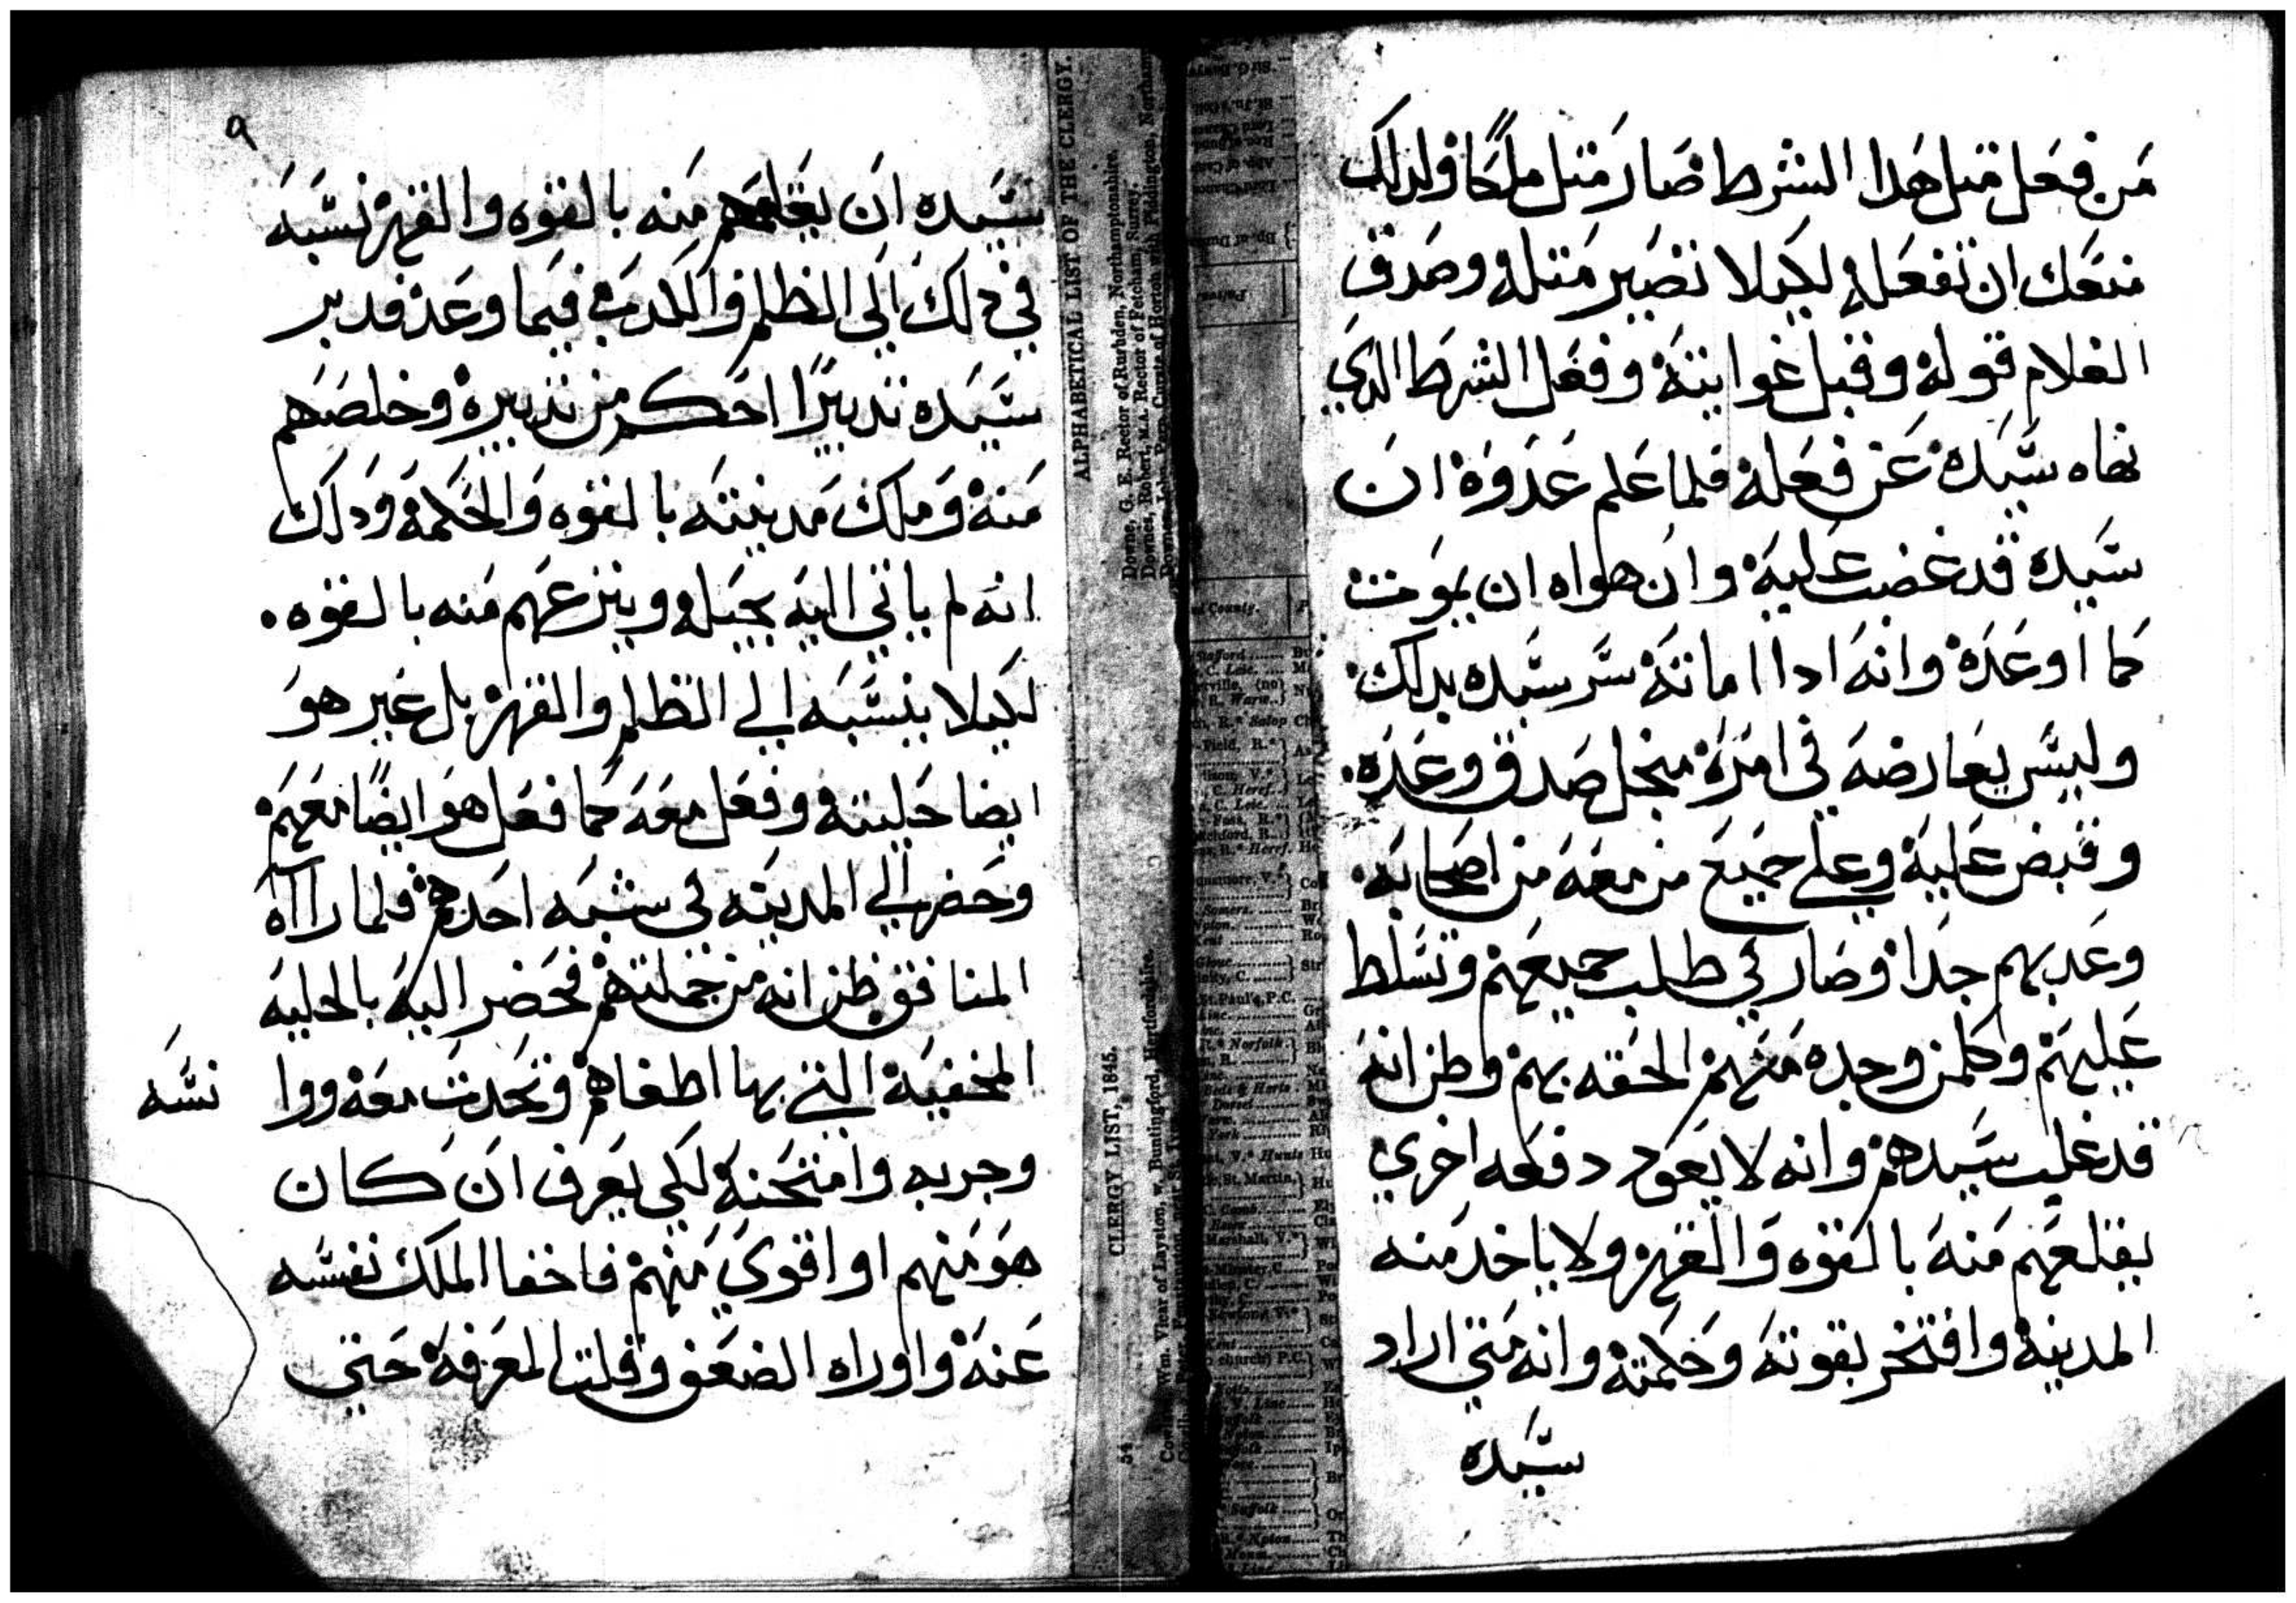 من فعل متل هدا الشرط صار متل ملكًا ولدلك
منعك ان تفعله لكيلا تصير متله وصدق
الغلام قوله وقبل غوايته وفعل الشرط الدي
نهاه سيده عن فعله فلما علم عدوه ان
سيده قد غضب عليه وان هواه ان يموت
كما اوعده وانه ادا اماته سر سيده بدلك
وليس يعارضه في امره منجل صدق وعده.
وقبض عليه وعلي جميع من معه من اصحابه.
وعدبهم جدا وصار في طلب جميعهم وتسلط
عليهم وكلمن وجده منهم الحقه بهم وظن انه
قد غلب سيدهم وانه لا يعود دفعه اخري
يقتلعهم منه بالقوه والقهر ولا ياخد منه
المدينه وافتخر بقوته وحكمته وانه متي اراد
سيده
٩
سيده ان يقلعهم منه بالقوه والقهر نسبه
في دلك الي الظلم والكدب فيما وعد فدبر
سيده تدبيرًا احكم من تدبيره وخلصهم
منه وملك مدينته بالقوه والحكمه ودلك
انه لم ياتي اليه بحيله وينزعهم منه بالقوه.
لكيلا ينسبه الي الظلم والقهر بل غير هو
ايضا حليته وفعل معه كما فعل هو ايضًا معهم
وحضر الي المدينه في شبه احدهم فلما رااه
المنافق ظن انه من جملتهم فحضر اليه بالحليه
المخفيه التي بها اطغاهم وتحدت معه ووانسه
وجربه وامتحنه لكي يعرف ان كان
هو منهم او اقوي منهم فاخفا الملك نفسه
عنه واوراه الضعف وقلت المعرفه حتي
ALPHABETICAL LIST OF THE CLERGY.
Downe, G. E. Rector of Rushden, Northamptonshire.
Downes, Robert, M.A. Rector of Fetcham, Surrey.
CLERGY LIST, 1845.
54